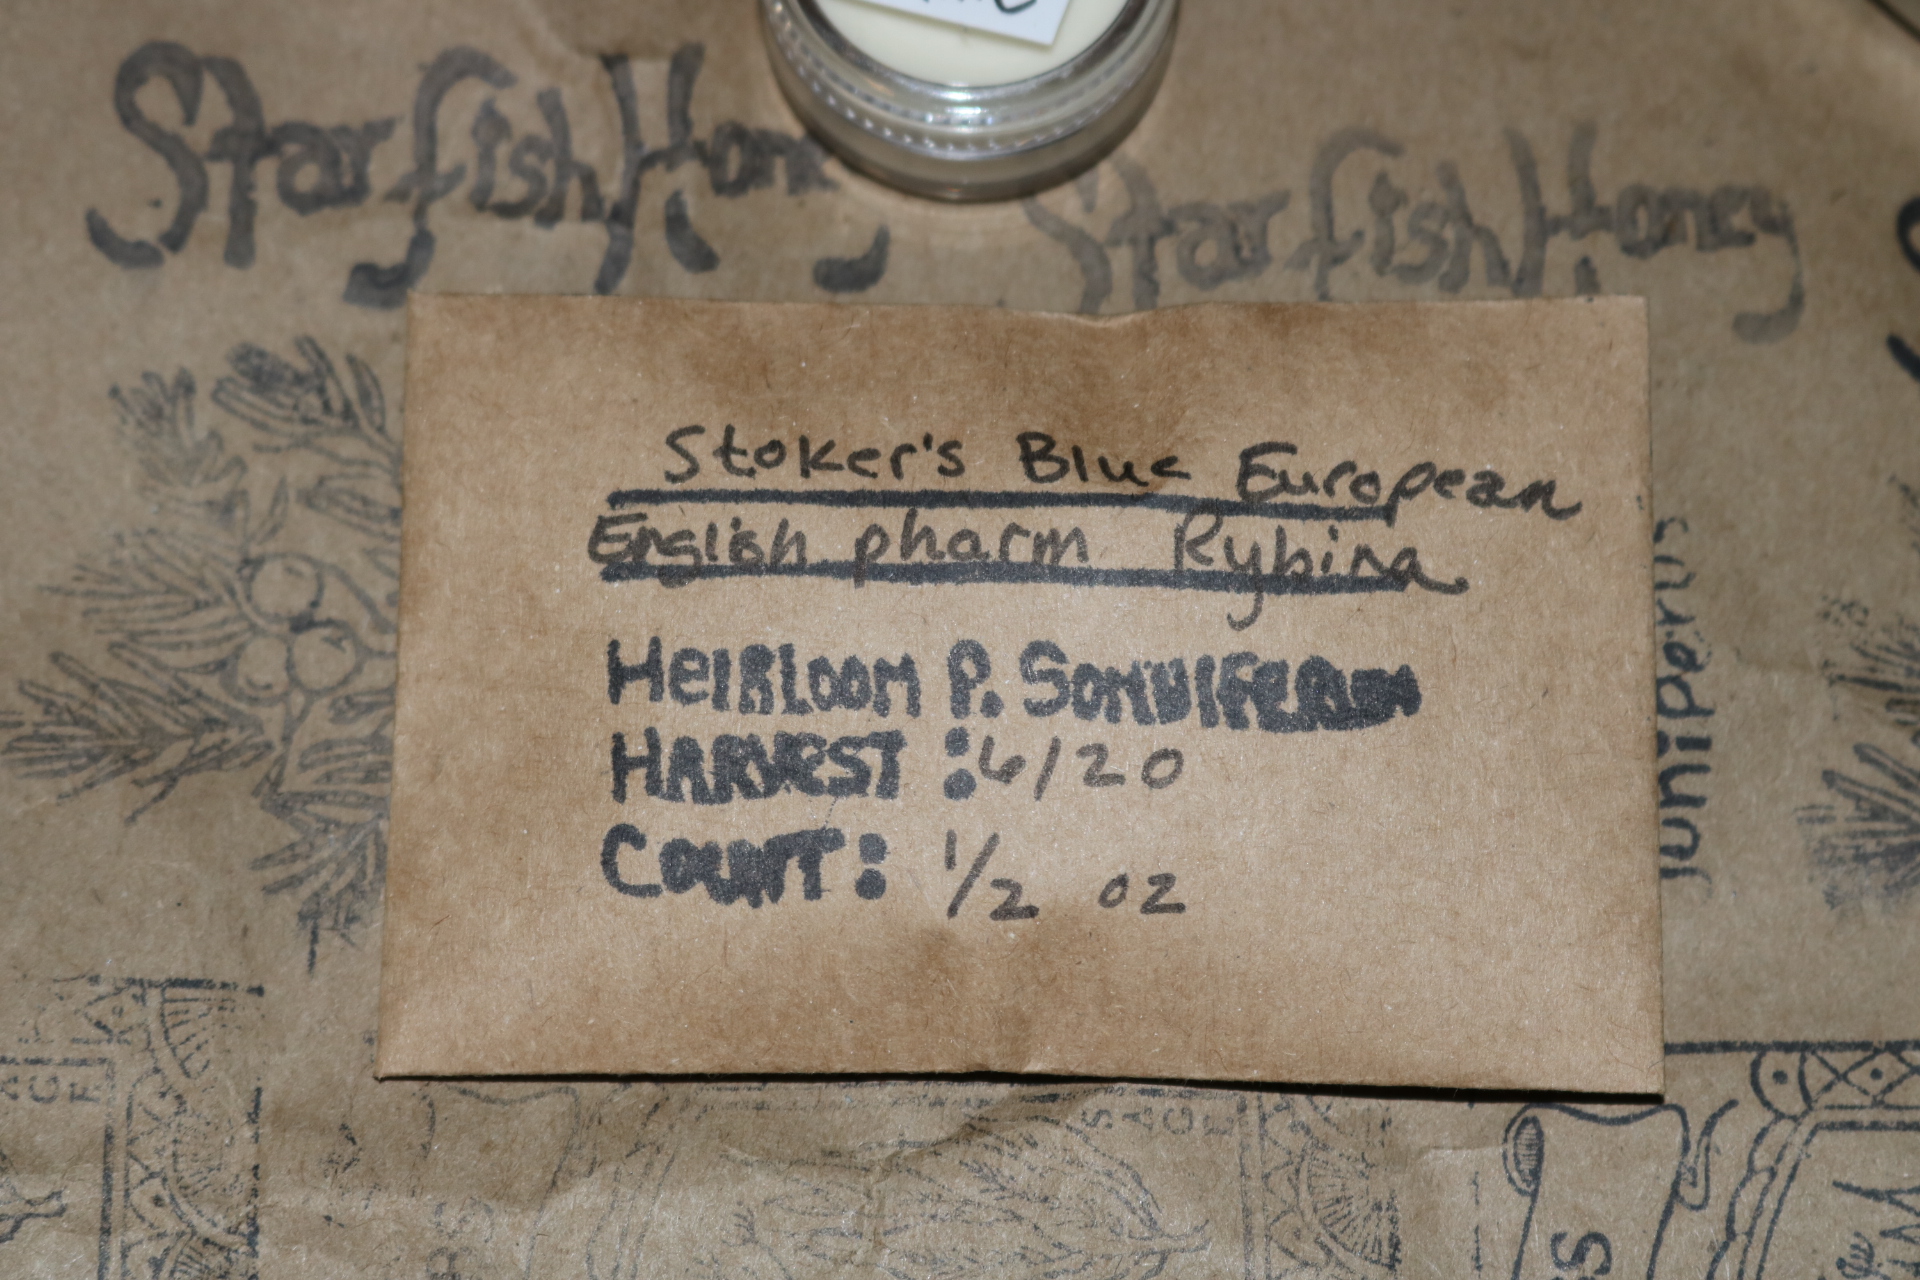 Starfish Honey
Starfish Honey
Stoker's Blue European
English pharm Rybina
HEIRLOOM P. SOMNIFERUM
HARVEST : 6/20
COUNT: 1/2 oz
juniperus
SAGE
SAGE